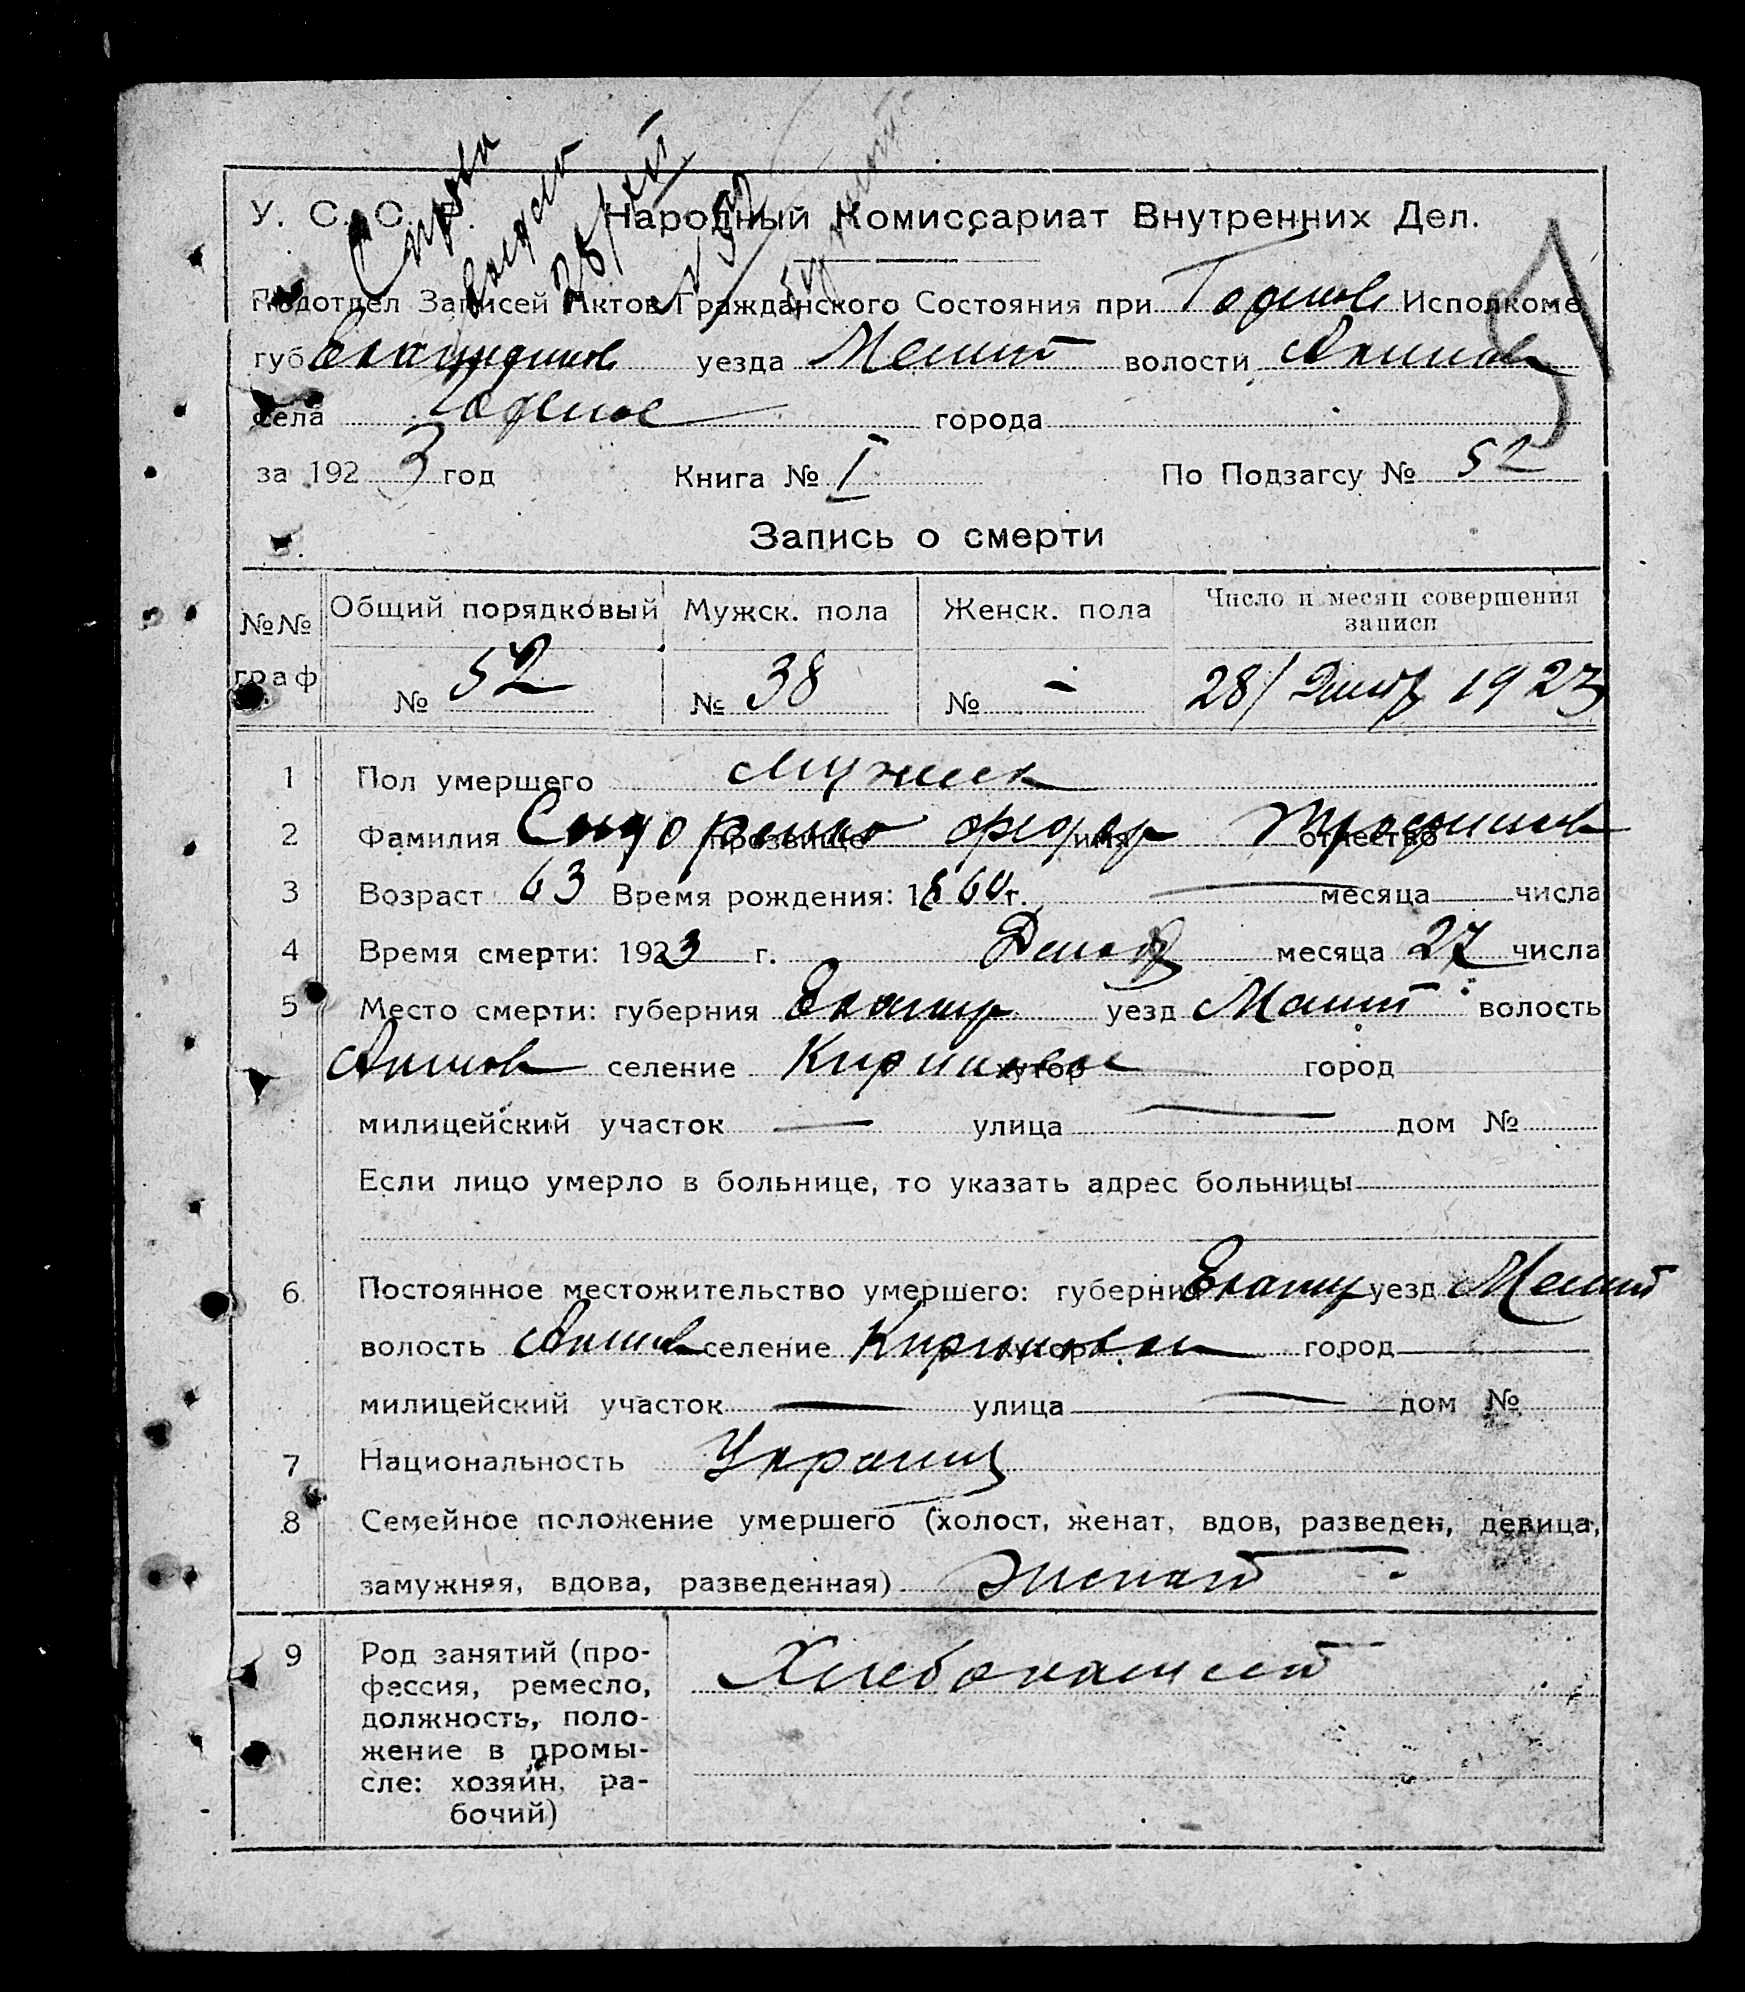 Справка выдана 28/XII
У. С. С. Р. Народный Комиссариат Внутренних Дел.
Подотдел Записей Актов Гражданского Состояния при Исполкоме
губ. Екатеринос уезда Мелит волости Акимов
села города
за 1923 год Книга № I По Подзагсу № 52
Запись о смерти
№№ граф Общий порядковый Мужск. пола Женск. пола Число и месяц совершения записи
№ 52 № 38 № - 28/ Декаб 1923
1 Пол умершего Мужск
2 Фамилия Сидоренко прозвище Федор имя Трофимов отчество
3 Возраст 63 Время рождения: 1860 г. — месяца числа
4 Время смерти: 1923 г. Декаб месяца 27 числа
5 Место смерти: губерния Екатер уезд Мелит волость
Акимов селение Кирпиловка хутор город
милицейский участок — улица — дом №
Если лицо умерло в больнице, то указать адрес больницы
6 Постоянное местожительство умершего: губерния Екатер уезд Мелит
волость Акимов селение хутор город
милицейский участок — улица — дом №
7 Национальность Украинец
8 Семейное положение умершего (холост, женат, вдов, разведен, девица,
замужняя, вдова, разведенная) Женат
9 Род занятий (про- Хлебопашест
фессия, ремесло,
должность, поло-
жение в промы-
сле: хозяин, ра-
бочий)